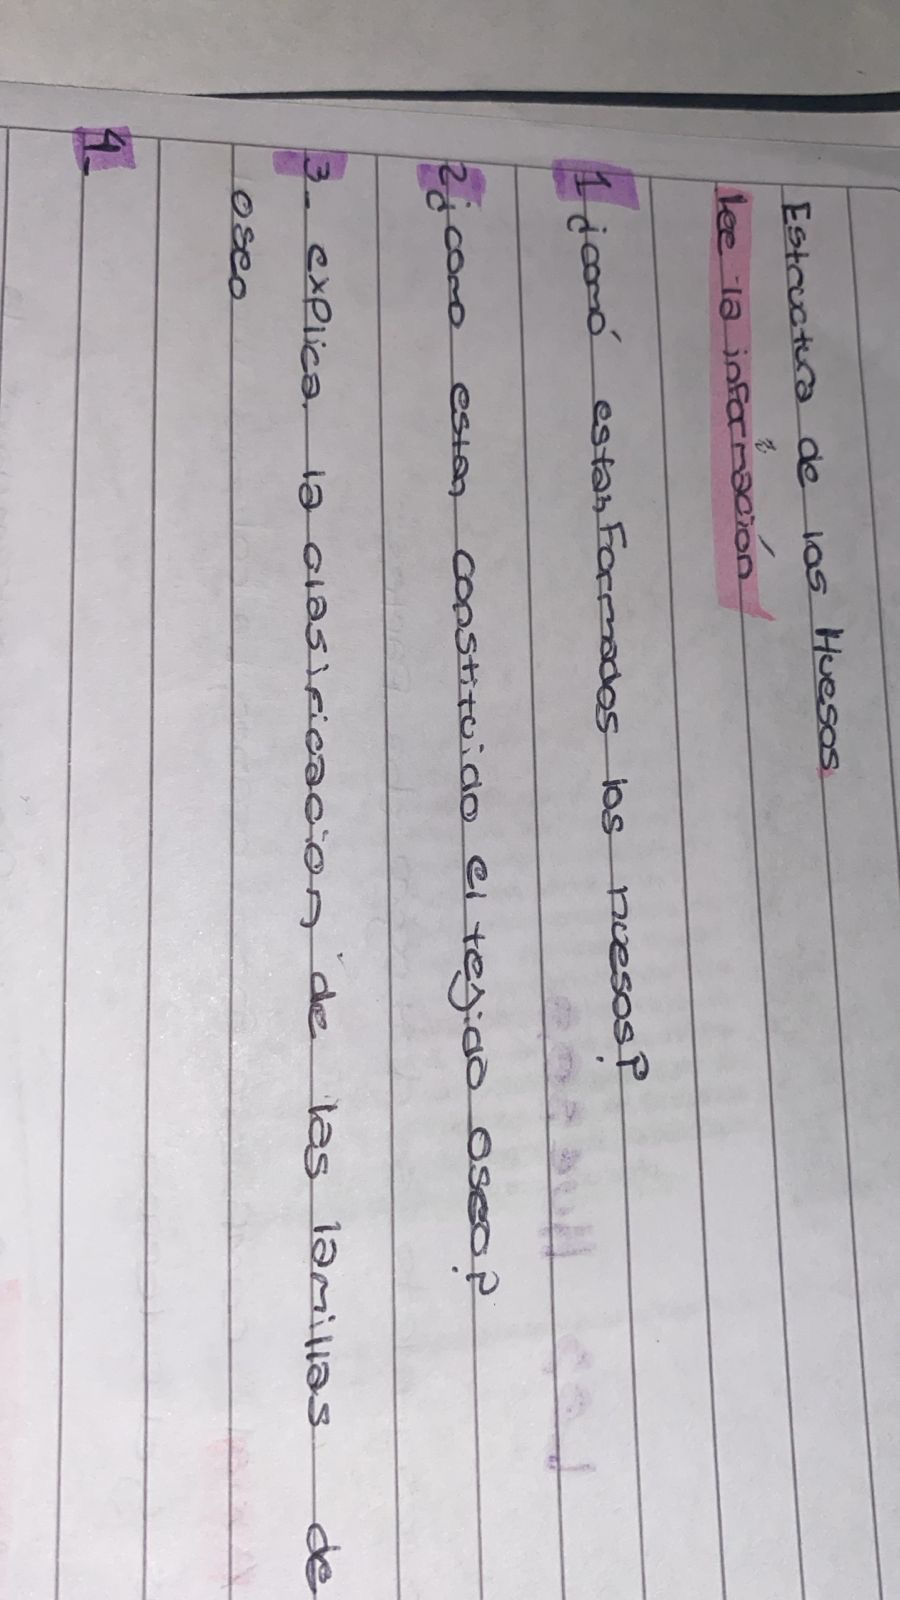 Estructura de los Huesos
Lee la información
1 ¿comó estan Formados los huesos?
2 ¿como estan constituido el tejido oseo?
3- explica la clasificacion de las lamillas de
oseo
4-